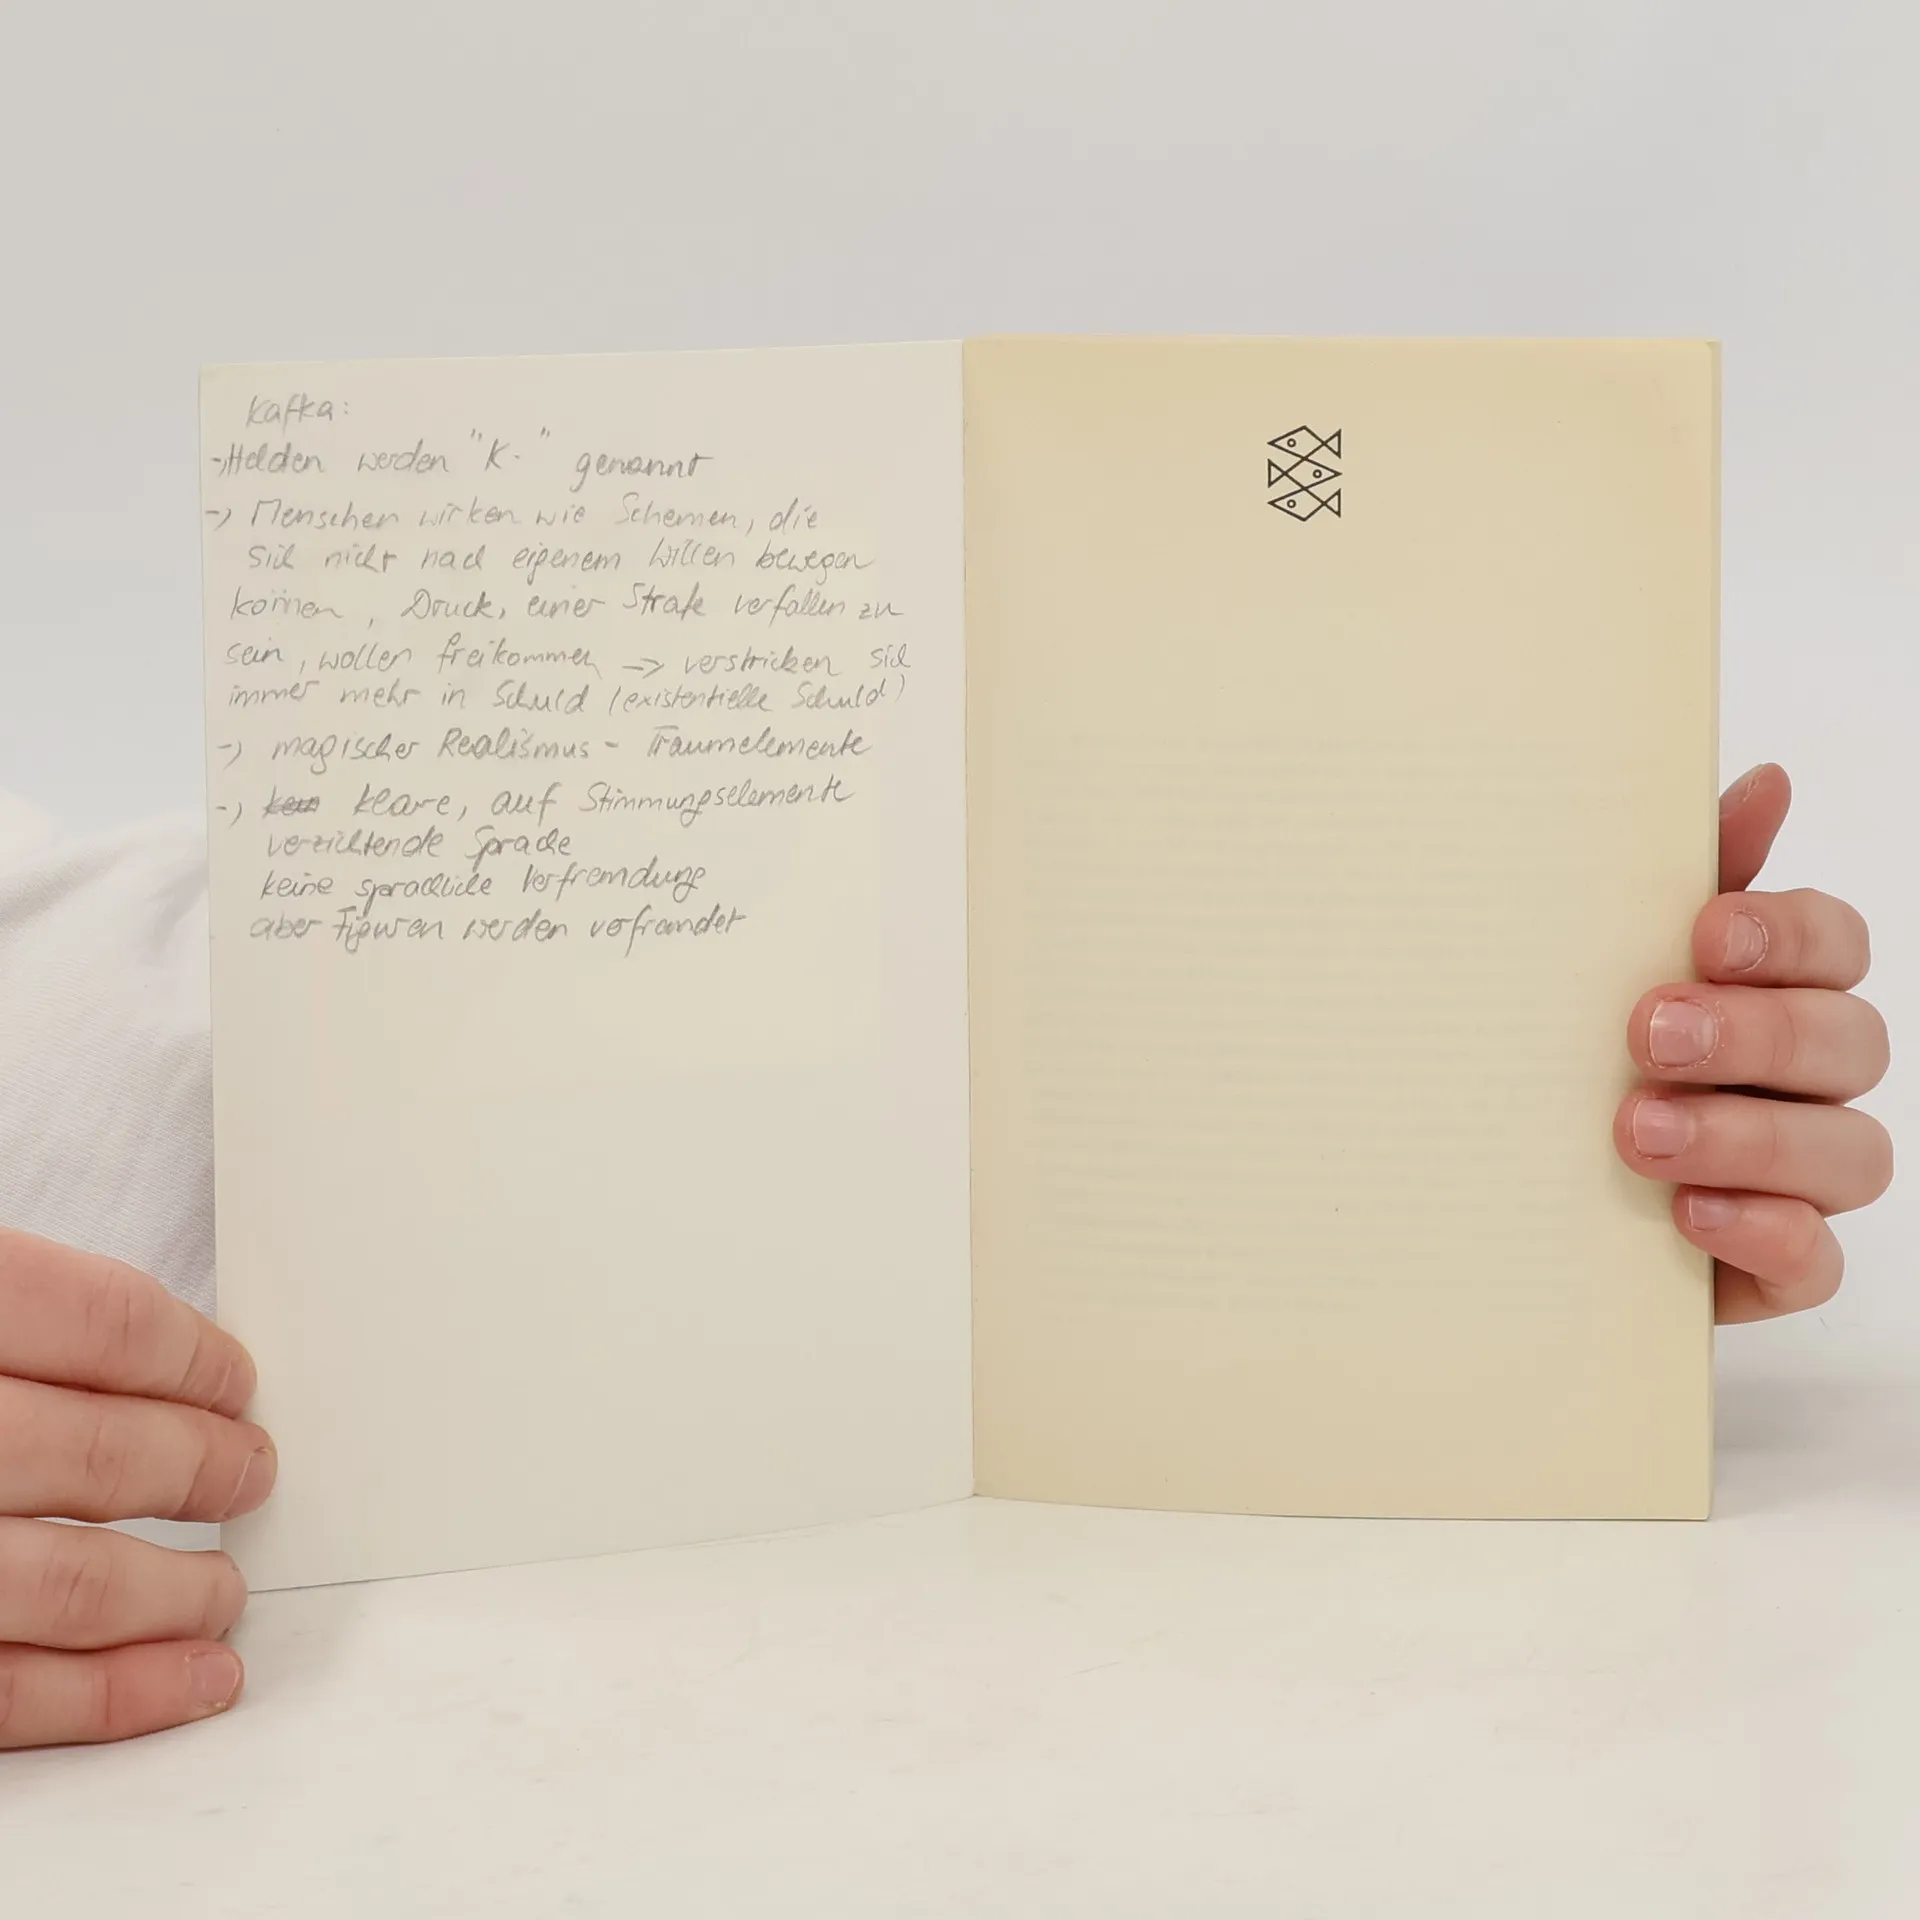 Kafka:
-> Helden werden "K." genannt
-> Menschen wirken wie Schemen, die
sich nicht nach eigenem Willen bewegen
können, Druck, einer Strafe verfallen zu
sein, wollen freikommen => verstricken sich
immer mehr in Schuld (existentielle Schuld)
-> magischer Realismus - Traumelemente
-> kein klare, auf Stimmungselemente
verzichtende Sprache
keine sprachliche Verfremdung
aber Figuren werden verfremdet